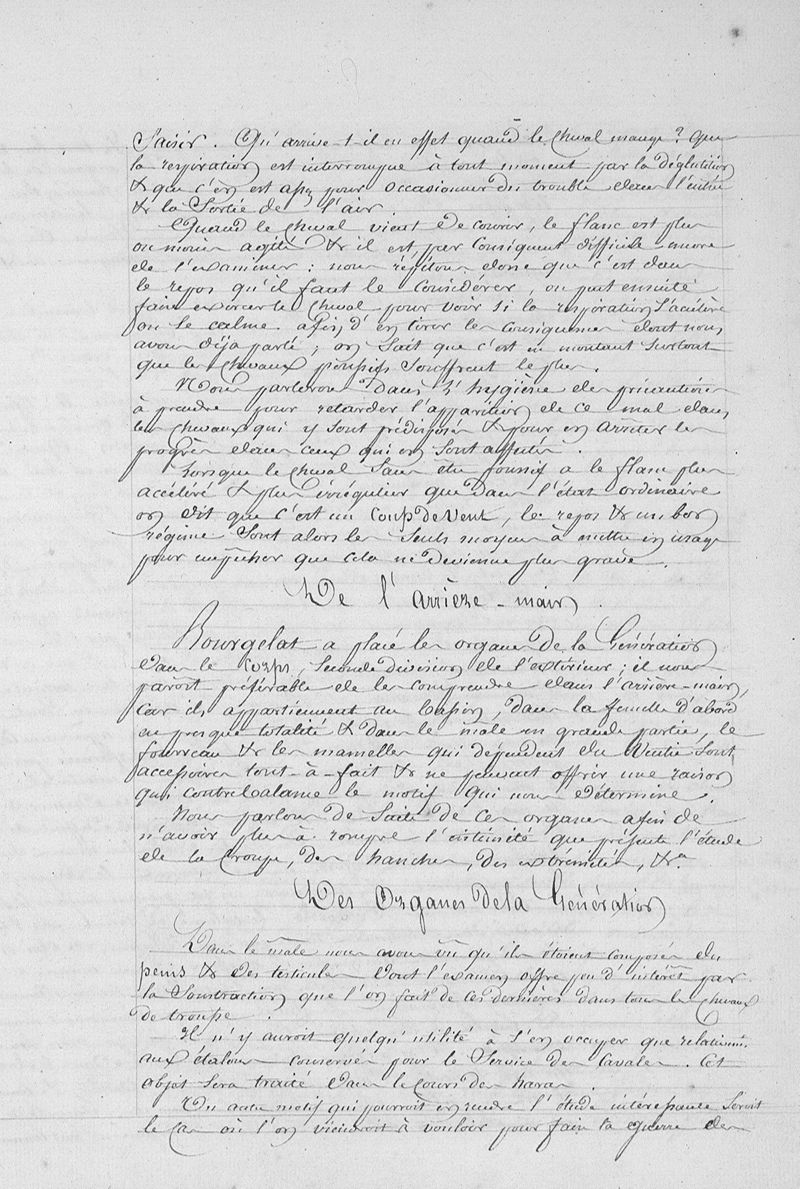 saisir. Qu'arrive-t-il en effet quand le cheval mange? Que
la respiration est interrompue à tout moment par la déglutition
& que c'en est assez pour occasionner du trouble dans l'entrée
& la sortie de l'air.
Quand le cheval vient de courir, le flanc est plus
ou moins agité & il est par conséquent difficile encore
de l'examiner: nous répétons donc que c'est dans
le repos qu'il faut le considérer, on peut ensuite
faire exercer le cheval pour voir si la respiration s'accélère
ou se calme afin d'en tirer les conséquences dont nous
avons déja parlé; on sait que c'est en montant surtout
que les chevaux poussifs souffrent le plus.
Nous parlerons dans l'hygiène des précautions
à prendre pour retarder l'apparition de ce mal dans
les chevaux qui y sont prédisposés & pour en arrêter les
progrès dans ceux qui en sont affectés.
Lorsque le cheval sans être poussif a le flanc plus
accéléré & plus irrégulier que dans l'état ordinaire
on dit que c'est un coup de vent, le repos & un bon
régime sont alors les seuls moyens à mettre en usage
pour empêcher que cela ne devienne plus grave.
De l'arrière-main.
Bourgelat a placé les organes de la Génération
dans le corps, seconde division de l'extérieur; il nous
paroit préférable de les comprendre dans l'arrière-main,
car ils appartiennent au bassin, dans la femelle d'abord
en presque totalité & dans le mâle en grande partie, le
fourreau & les mamelles qui dépendent du ventre sont
accessoires tout-à-fait & ne peuvent offrir une raison
qui contrebalance le motif qui nous détermine.
Nous parlons de suite de ces organes afin de
n'avoir plus à rompre l'intimité que présente l'étude
de la croupe, des hanches, des extrémités, &a.
Des Organes de la Génération
Dans le mâle nous avons vu qu'ils étoient composés du
penis & des testicules dont l'examen offre peu d'intérêt par
la soustraction que l'on fait de ces dernières dans tous les chevaux
de troupe.
Il n'y auroit quelqu'utilité à s'en occuper que relativemt.
aux étalons conservés pour le service des cavales. Cet
objet sera traité dans le cours des haras.
Un autre motif qui pourroit en rendre l'étude intéressante seroit
le cas où l'on viendroit à vouloir pour faire la guerre des